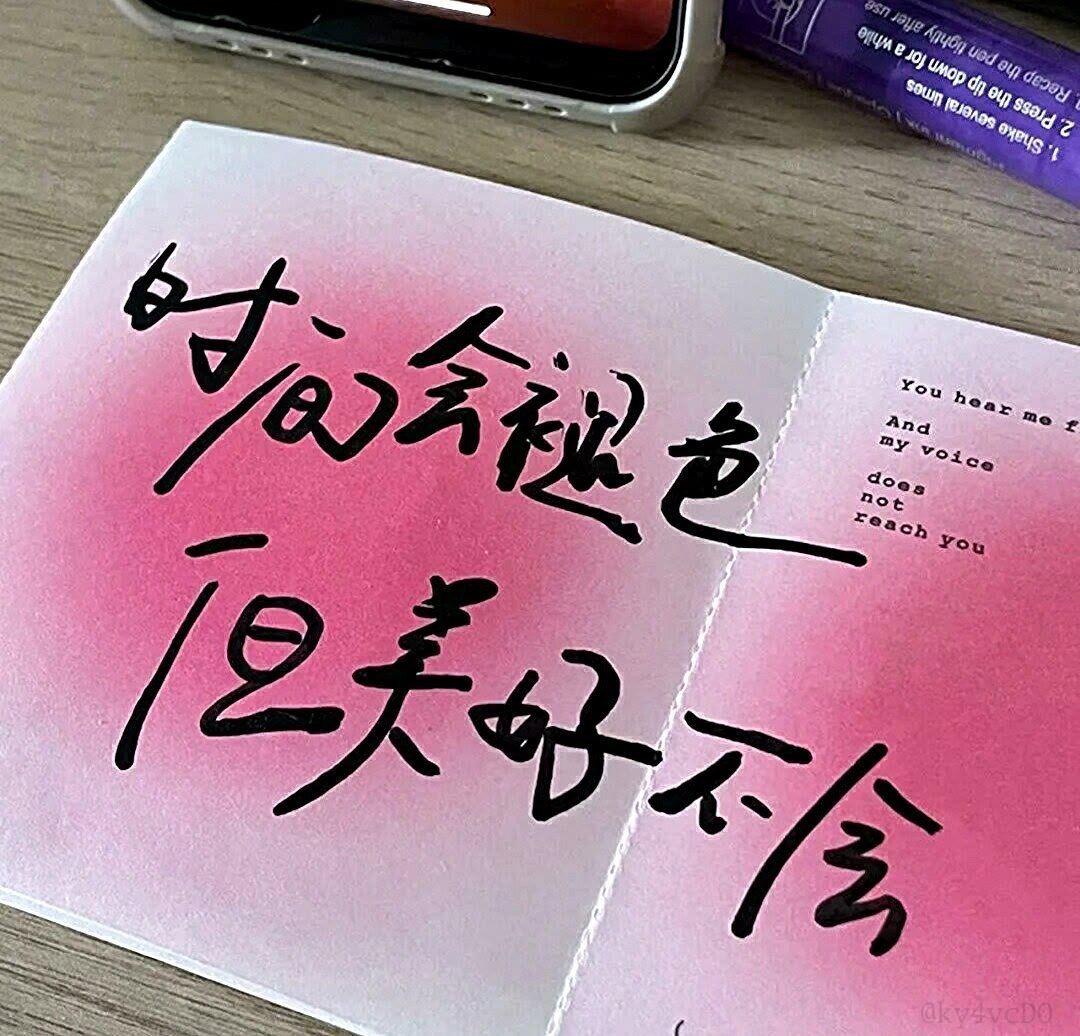 时间会褪色
但美好不会
You hear me f
And
my voice
does
not
reach you
1. Shake several times
2. Press the tip down for a while
Recap the pen tightly after use
@kv4ycD0